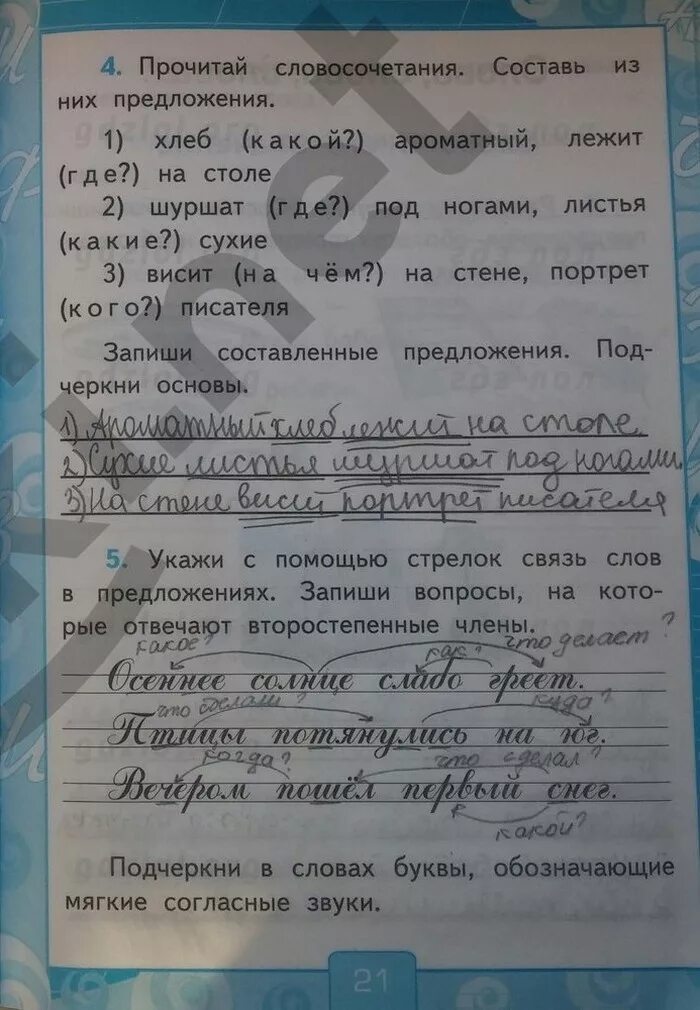 4. Прочитай словосочетания. Составь из
них предложения.
1) хлеб (какой?) ароматный, лежит
(где?) на столе
2) шуршат (где?) под ногами, листья
(какие?) сухие
3) висит (на чём?) на стене, портрет
(кого?) писателя
Запиши составленные предложения. Под-
черкни основы.
1) Ароматный хлеб лежит на столе.
2) Сухие листья шуршат под ногами.
3) На стене висит портрет писателя
5. Укажи с помощью стрелок связь слов
в предложениях. Запиши вопросы, на кото-
рые отвечают второстепенные члены.
какое? как? что делает?
Осеннее солнце слабо греет.
что сделали? куда?
Птицы потянулись на юг.
когда? что сделал?
Вечером пошёл первый снег.
какой?
Подчеркни в словах буквы, обозначающие
мягкие согласные звуки.
21